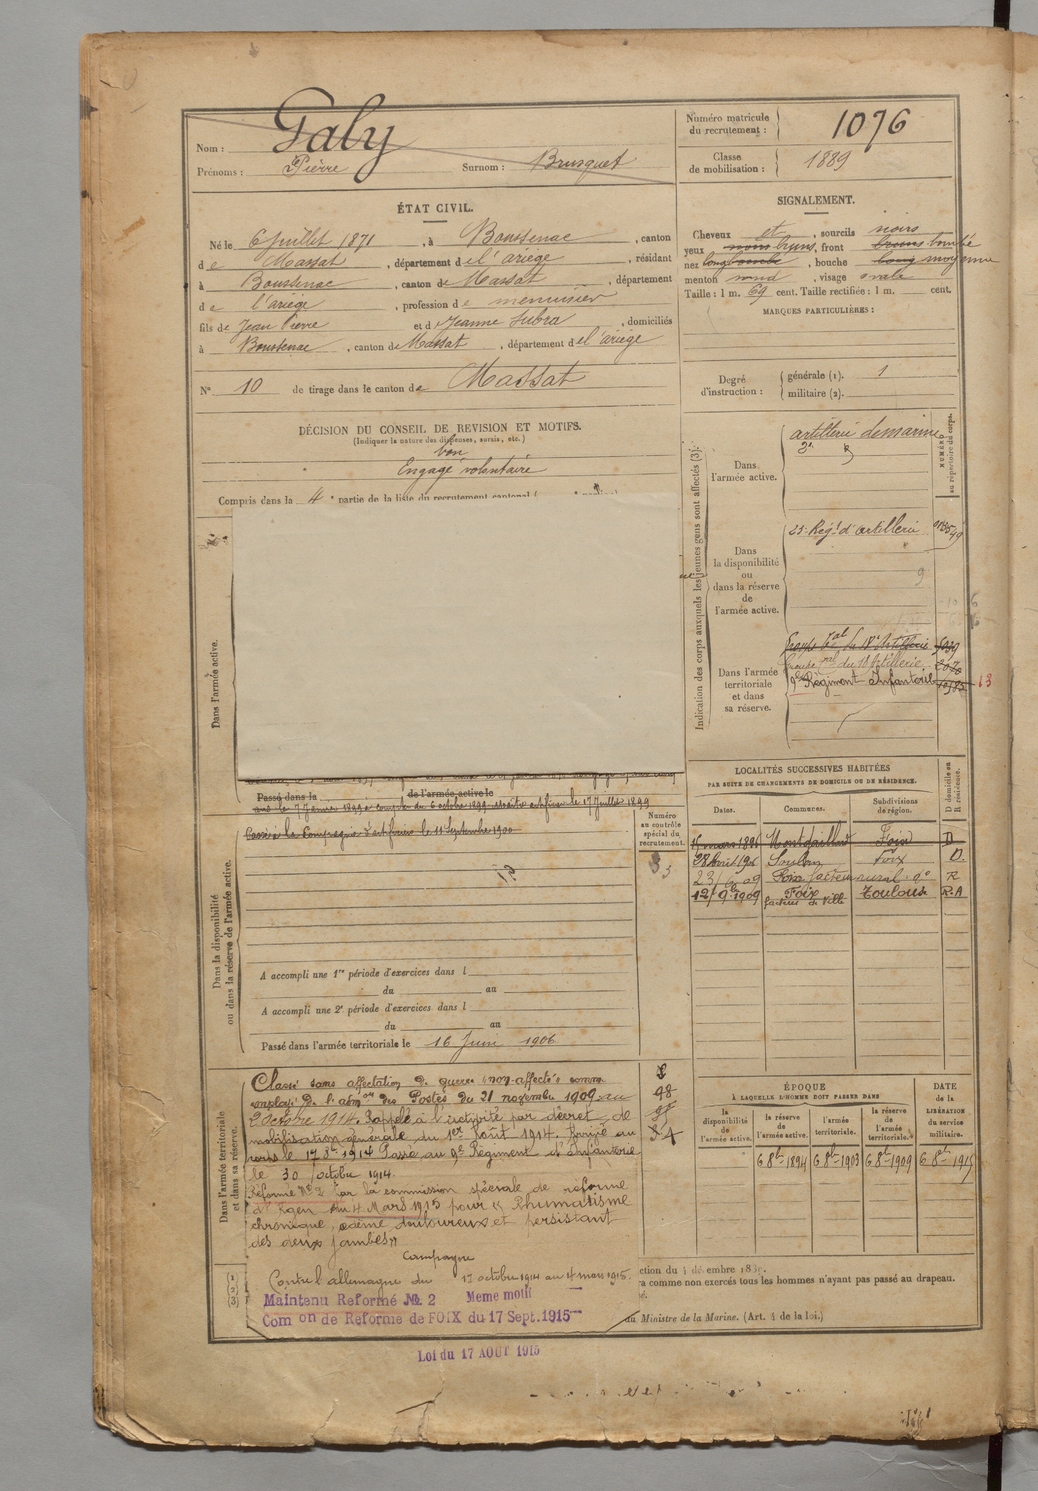 Nom : Galy
Prénoms : Pierre Surnom : Brusquet
Numéro matricule du recrutement : 1076
Classe de mobilisation : 1889
ÉTAT CIVIL.
Né le 6 juillet 1871, à Boussenac, canton
de Massat, département de l'ariège, résidant
à Boussenac, canton de Massat, département
de l'ariège, profession de menuisier
fils de Jean Pierre et de Jeanne Subra, domiciliés
à Boussenac, canton de Massat, département de l'ariège
N° 10 de tirage dans le canton de Massat
SIGNALEMENT.
Cheveux et, sourcils noirs
yeux noirs bruns, front bruns bombé
nez long bombé, bouche long moyenne
menton rond, visage ovale
Taille : 1 m. 69 cent. Taille rectifiée : 1 m. cent.
MARQUES PARTICULIÈRES :
Degré d'instruction : générale (1). 1
militaire (2).
DÉCISION DU CONSEIL DE REVISION ET MOTIFS.
(Indiquer la nature des dispenses, sursis, etc.)
bon
Engagé volontaire
Compris dans la 4e partie de la liste du recrutement cantonal
Indication des corps auxquels les jeunes gens sont affectés (3).
NUMÉRO au répertoire du corps.
Dans l'armée active.
artillerie de marine
Dans la disponibilité ou dans la réserve de l'armée active.
23e Régt d'artillerie
9
Dans l'armée territoriale et dans sa réserve.
Groupe tal du 18e Artillerie
Groupe tal du 18 Artillerie
9e Régiment Infanterie
Dans l'armée active.
Passé dans la de l'armée active le
le 7 Janvier 1899 à compter du 6 octobre 1899 Maître artificier le 17 Juillet 1899
Passé à la Compagnie d'artificiers le 11 Septembre 1900
Numéro au contrôle spécial du recrutement.
Dans la disponibilité ou dans la réserve de l'armée active.
A accompli une 1re période d'exercices dans l
du au
A accompli une 2e période d'exercices dans l
du au
Passé dans l'armée territoriale le 16 Juin 1906
LOCALITÉS SUCCESSIVES HABITÉES
PAR SUITE DE CHANGEMENTS DE DOMICILE OU DE RÉSIDENCE.
Dates. Communes. Subdivisions de région. D domicile ou R résidence.
15 mars 1891 Montgaillard Foix D
28 Avril 190 Soulan Foix D.
Foix facteur rural R
12/9bre 1909 Foix facteur de ville Toulouse R.A
Dans l'armée territoriale et dans sa réserve.
Classé sans affectation de guerre (non-affecté) comme
employé de l'admon des Postes du 21 novembre 1909 au
2 Octobre 1914. Rappelé à l'activité par décret de
mobilisation générale du 1er Août 1914. Arrivé au
corps le 17 8bre 1914 Passé au 9e Régiment d'Infanterie
le 30 octobre 1914.
Réformé N° 2 par la commission spéciale de réforme
d'Agen du 4 Mars 1915 pour « Rhumatisme
chronique, œdème douloureux et persistant
des deux jambes »
Campagne
Contre l'allemagne du 17 octobre 1914 au 4 mars 1915.
Maintenu Réformé № 2 Meme motif
Com on de Reforme de FOIX du 17 Sept. 1915
Loi du 17 AOUT 1915
ÉPOQUE
À LAQUELLE L'HOMME DOIT PASSER DANS
la disponibilité de l'armée active. la réserve de l'armée active. l'armée territoriale. la réserve de l'armée territoriale.
DATE de la LIBÉRATION du service militaire.
6 8bre 1894 6 8bre 1903 6 8bre 1909 6 8bre 1915
(1)
(2)
(3)
ction du 4 décembre 188
ra comme non exercés tous les hommes n'ayant pas passé au drapeau.
du Ministre de la Marine. (Art. 4 de la loi.)